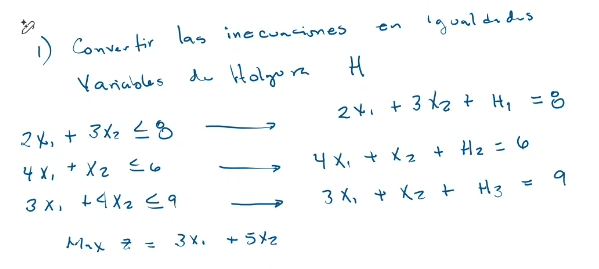 1) Convertir las inecuaciones en igualdades
Variables de Holgura H
2x₁ + 3x₂ ≤ 8 → 2x₁ + 3x₂ + H₁ = 8
4x₁ + x₂ ≤ 6 → 4x₁ + x₂ + H₂ = 6
3x₁ + 4x₂ ≤ 9 → 3x₁ + x₂ + H₃ = 9
Max z = 3x₁ + 5x₂